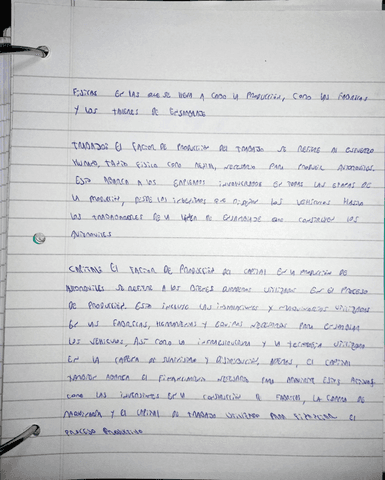 Físicas en las que se lleva a cabo la producción, como las fábricas
y los talleres de ensamblaje
Trabajo: El factor de producción del trabajo se refiere al esfuerzo
humano, tanto físico como mental, necesario para producir automóviles.
Esto abarca a los empleados involucrados en todas las etapas de
la producción, desde los ingenieros que diseñan los vehículos hasta
los trabajadores de la línea de ensamblaje que construyen los
automóviles
Capital: El factor de producción del capital en la producción de
automóviles se refiere a los bienes utilizados en el proceso
de producción. Esto incluye las y maquinarias utilizadas
en las fábricas, herramientas y equipos necesarios para ensamblar
los vehículos, así como la infraestructura y la tecnología utilizada
en la cadena de suministro y distribución. Además, el capital
también abarca el financiamiento necesario para estas
como las inversiones en la construcción de fábricas, la compra de
maquinaria y el capital de trabajo utilizado para el
proceso productivo